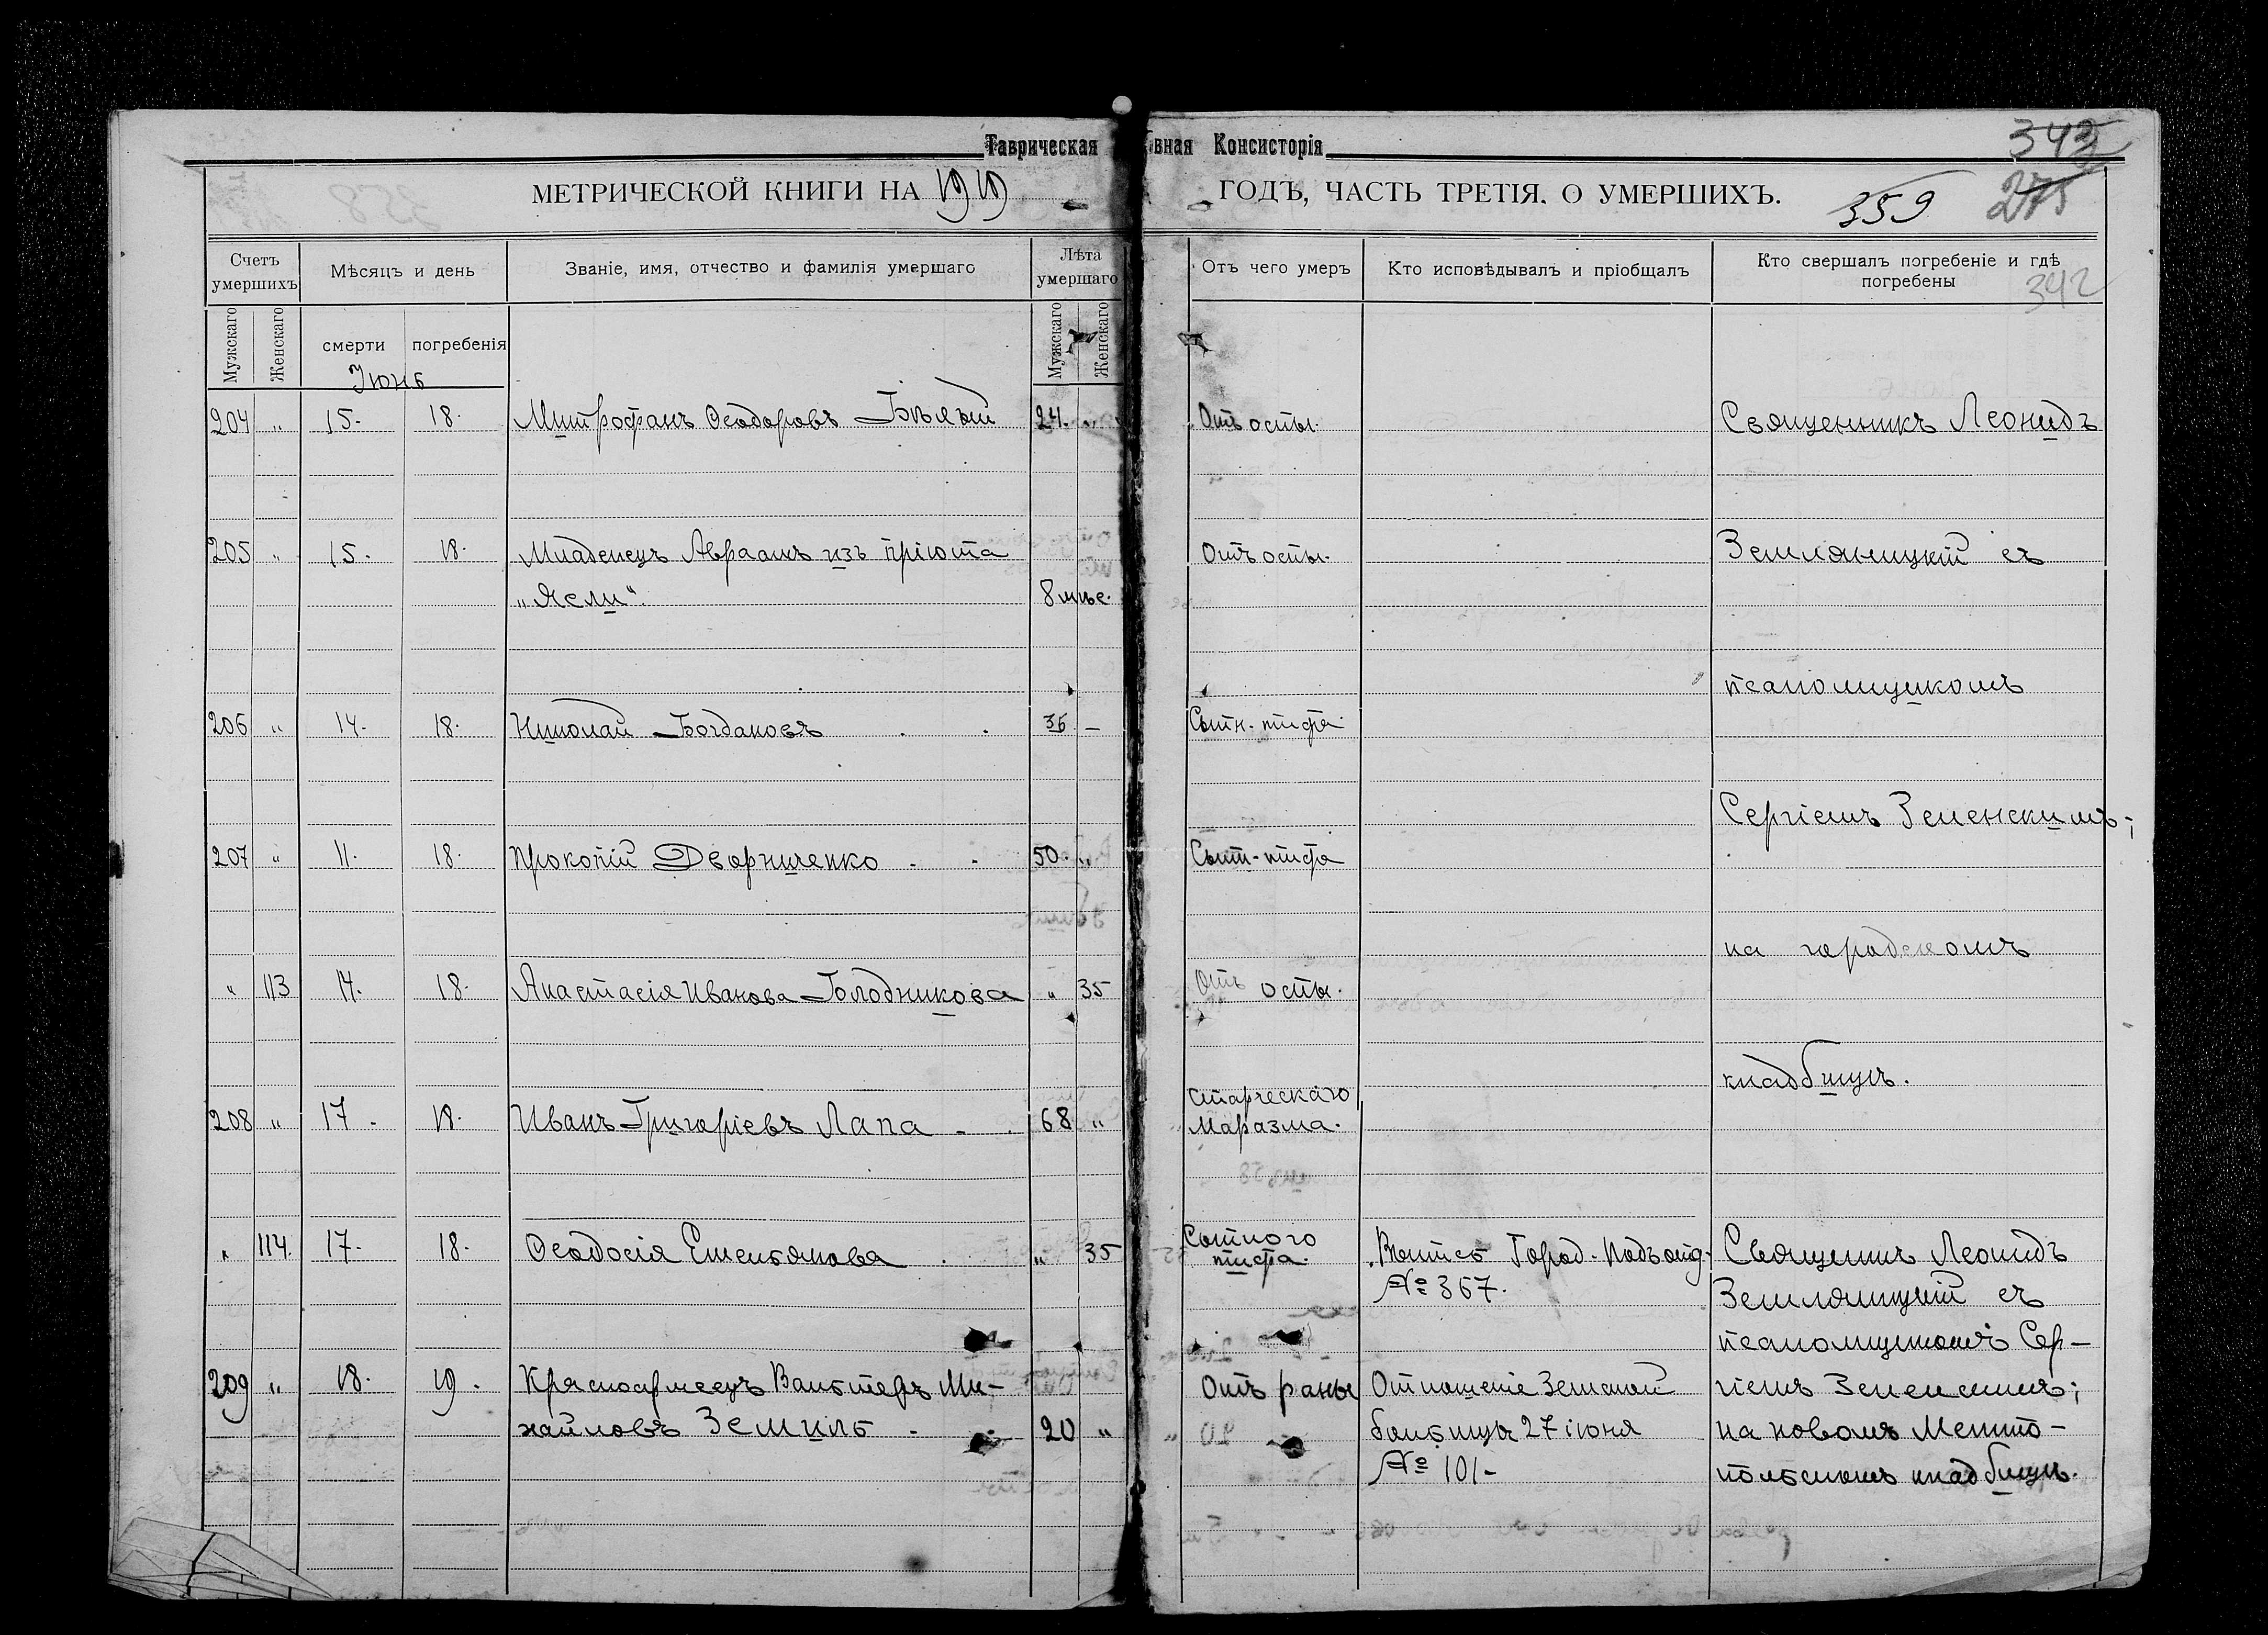 Таврическая вная Консисторія
343
МЕТРИЧЕСКОЙ КНИГИ НА 1919 ГОДЪ, ЧАСТЬ ТРЕТІЯ. О УМЕРШИХЪ.
359 275
Счетъ умершихъ
Мѣсяцъ и день
Званіе, имя, отчество и фамилія умершаго
Лѣта умершаго
Отъ чего умеръ
Кто исповѣдывалъ и пріобщалъ
Кто свершалъ погребеніе и гдѣ погребены
342
Мужскаго Женскаго смерти погребенія Мужскаго Женскаго
Іюнь
204 „ 15. 18. Митрофанъ Ѳеодоровъ Бѣлый 24. „ Отъ оспы. Священникъ Леонидъ
205 „ 15. 18. Младенецъ Авраамъ изъ пріюта Отъ оспы. Земляницкій съ
„Ясли“. 8 мѣс.
псаломщикомъ
206 „ 14. 18. Николай Богдановъ 36 – Сыпн. тифа
Сергіемъ Зеленскимъ;
207 „ 11. 18. Прокопій Дворниченко 50. „ Сыпн. тифа
на городскомъ
„ 113 14. 18. Анастасія Иванова Голодникова „ 35 Отъ оспы.
кладбищѣ.
Старческаго
208 „ 17. 18. Иванъ Григоріевъ Лапа 68 „ Маразма.
Сыпного
„ 114. 17. 18. Ѳеодосія Емельянова „ 35 тифа. Город. Священникъ Леонидъ
№ 367.
Земляницкій съ
псаломщикомъ Сер-
209 „ 18. 19. Красноармеецъ Вальтеръ Ми- Отъ раны Отношеніе Земской гіемъ Зеленскимъ;
хайловъ Земиль 20 „ больницы 27 іюня на новомъ Мелито-
№ 101- польскомъ кладбищѣ.